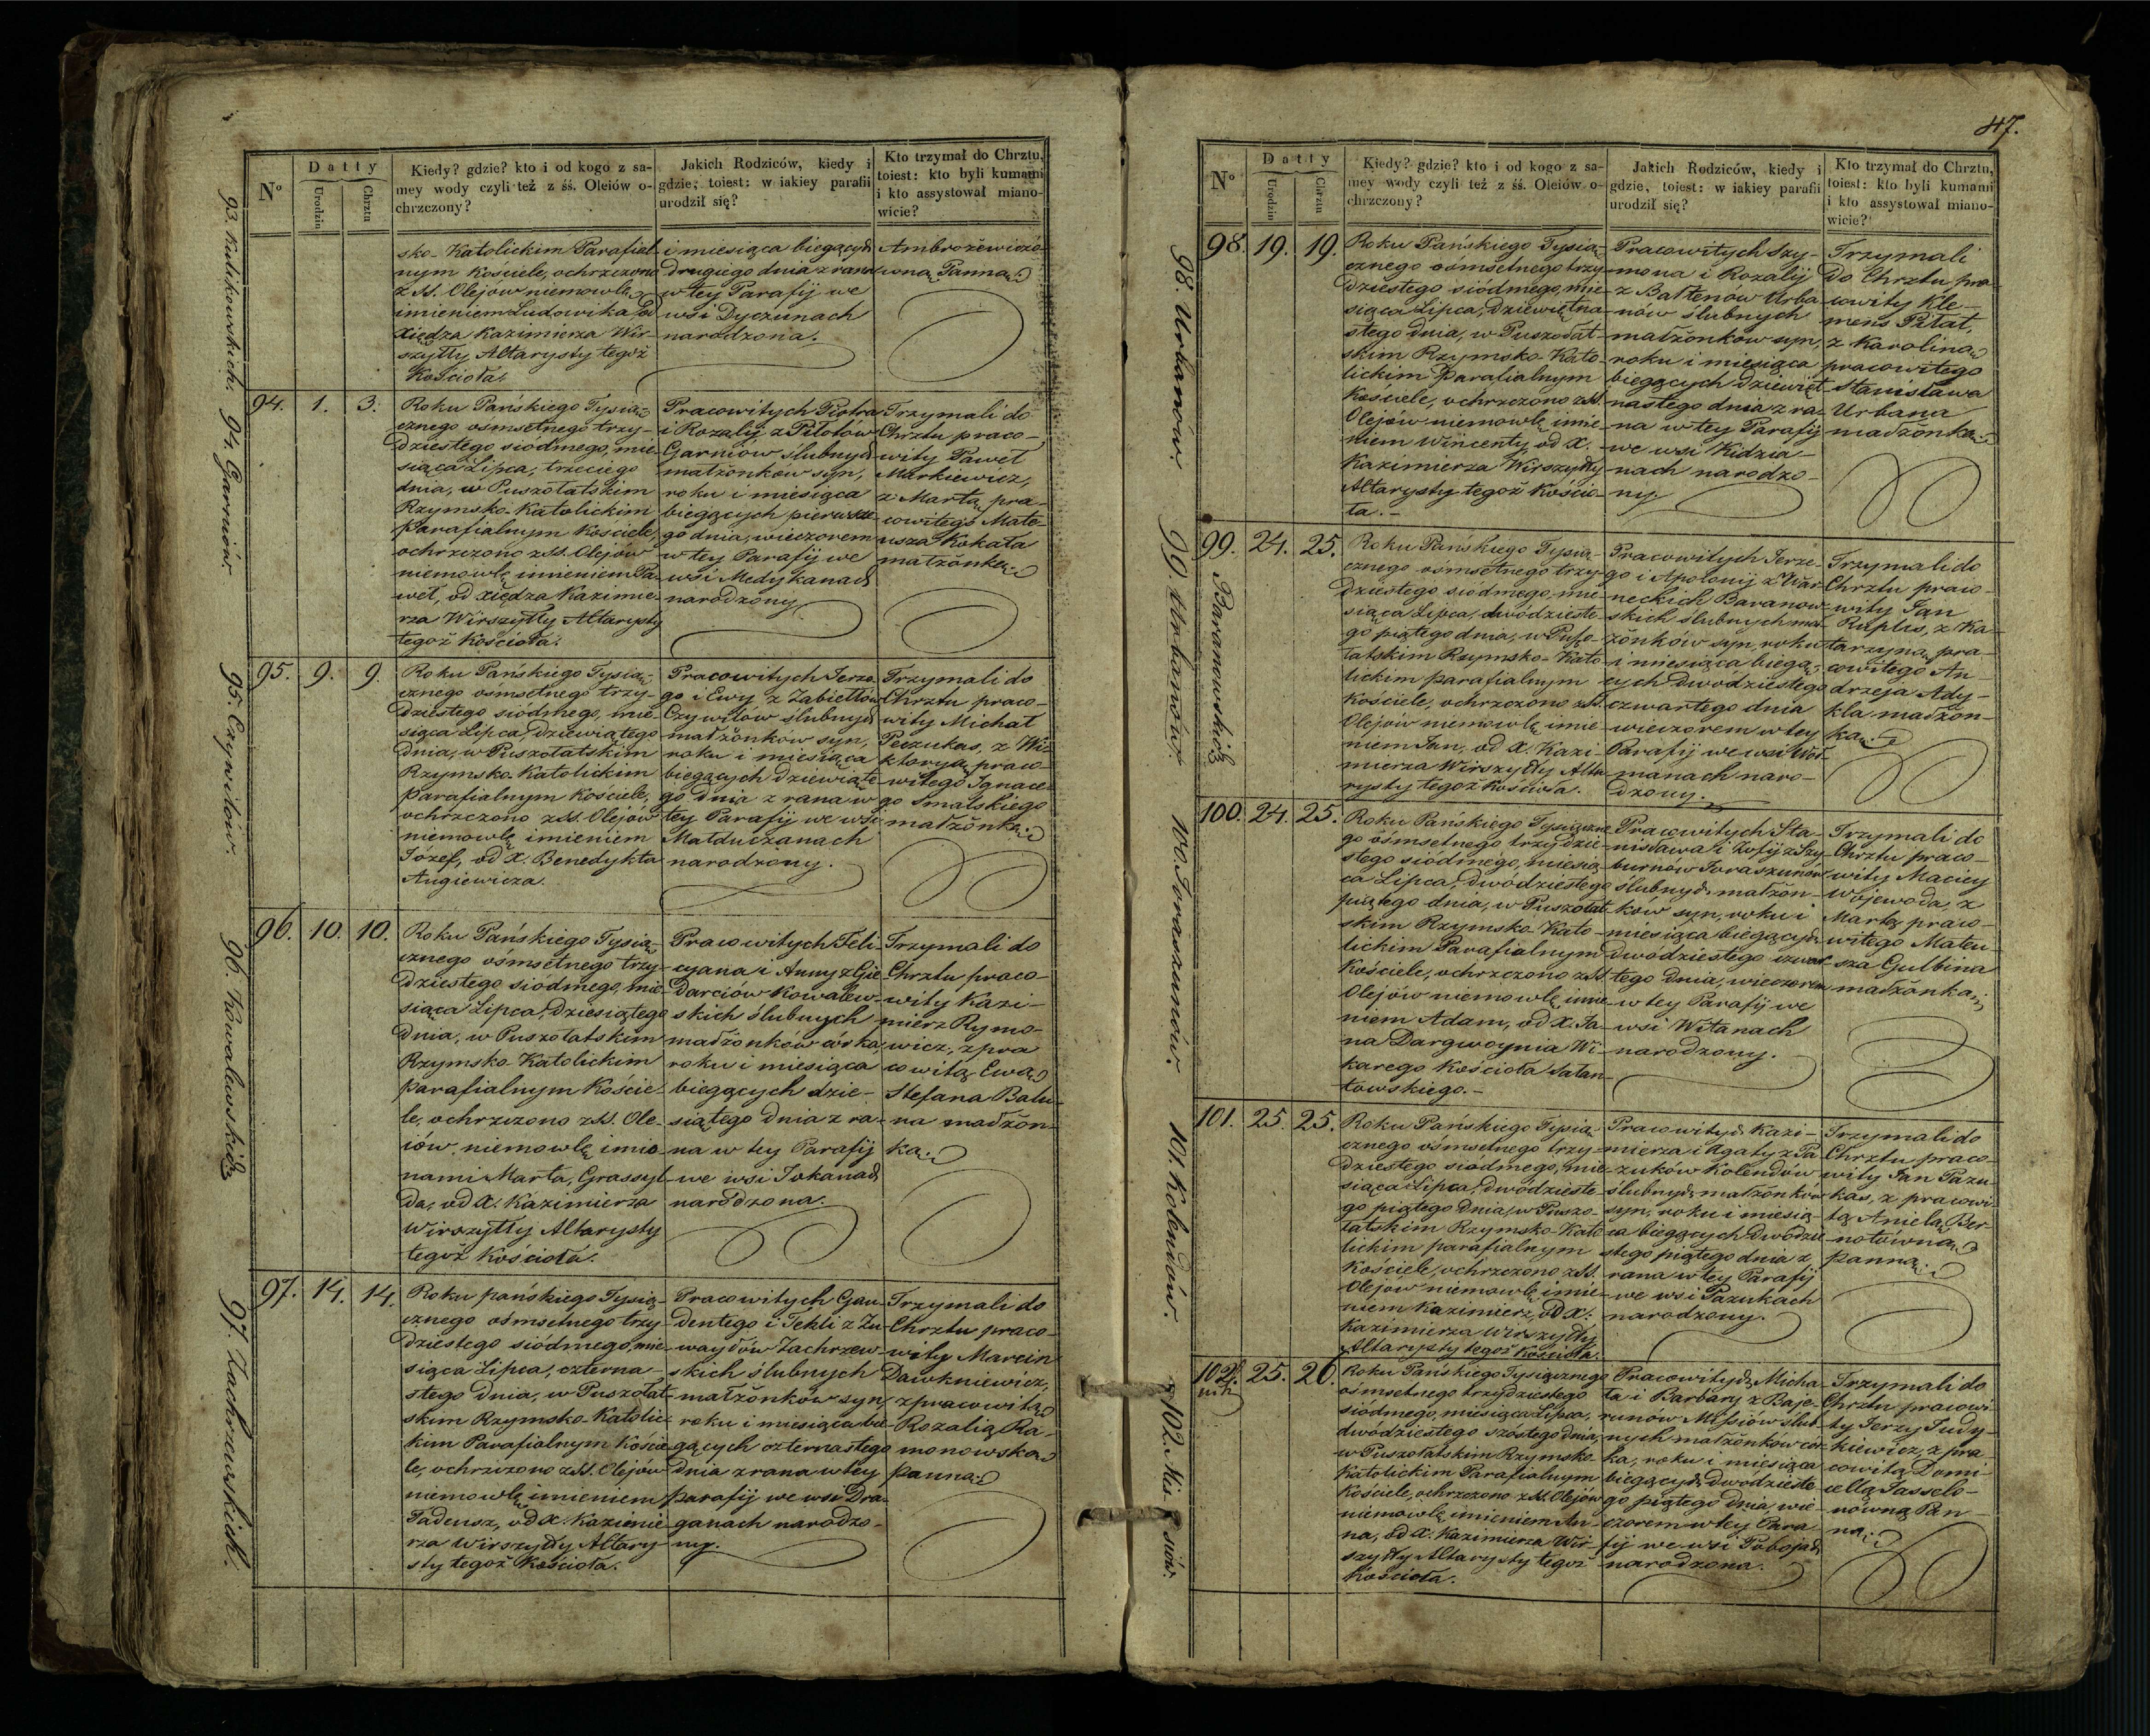 N°
Datty
Urodzin
Chrztu
Kiedy? gdzie? kto i od kogo z sa-
mey wody czyli też z śś. Oleiów o-
chrzczony?
Jakich Rodziców, kiedy i
gdzie, toiest: w iakiey parafii
urodził się?
Kto trzymał do Chrztu,
toiest: kto byli kumami
i kto assystował miano-
wicie?
93. Kulikowskich.
sko-Katolickim Parafial-
nym Kościele, ochrzczono
z SS. Olejów niemowlę
imieniem Ludowika, od
Xiędza Kazimierza Wir-
szyłły Altarysty tegoż
Kościoła.
i miesiąca biegących
drugiego dnia z rana
w tey Parafij we
wsi Dyczunach
narodzona.
Ambrożewiczó-
wną Panną.
94. Garniów.
94.
1.
3.
Roku Pańskiego Tysią-
cznego osmsetnego trzy-
dziestego siódmego, mie-
siąca Lipca, trzeciego
dnia, w Puszołatskim
Rzymsko-Katolickim
Parafialnym Kościele,
ochrzczono z SS. Olejów
niemowlę imieniem Pa-
weł, od xiędza Kazimie-
rza Wirszyłły Altarysty
tegoż Kościoła.
Pracowitych Piotra
i Rozalij z Pilotów
Garniow ślubnych
małżonków syn,
roku i miesiąca
biegących pierwsze-
go dnia, wieczorem
w tey Parafij we
wsi Medykanach
narodzony
Trzymali do
Chrztu praco-
wity Paweł
Markiewicz,
z Martą pra-
cowitego Mate-
usza Kokata
małżonką.
95. Czywilów.
95.
9.
9.
Roku Pańskiego Tysią-
cznego osmsetnego trzy-
dziestego siódmego, mie-
siąca Lipca, dziewiątego
dnia, w Puszołatskim
Rzymsko-Katolickim
parafialnym Kościele,
ochrzczono z SS. Olejów
niemowlę imieniem
Józef, od X. Benedykta
Augiewicza.
Pracowitych Jerze-
go i Ewy z Zabiełłów
Czywilów ślubnych
małżonków syn,
roku i miesiąca
biegących dziewiąte-
go dnia z rana w
tey Parafij we wsi
Małduczanach
narodzony.
Trzymali do
Chrztu praco-
wity Michał
Peczukas, z Wi-
ktoryą praco-
witego Ignace-
go Smalskiego
małżonką.
96. Kowalewskich
96.
10.
10.
Roku Pańskiego Tysią-
cznego ośmsetnego trzy-
dziestego siódmego, mie-
siąca Lipca, dziesiątego
dnia, w Puszołatskim
Rzymsko-Katolickim
parafialnym Koście-
le, ochrzczono z SS. Ole-
iów niemowlę imio-
nami Marta, Grassyl-
da, od X. Kazimierza
Wirszyłły Altarysty
tegoż Kościoła.
Pracowitych Feli-
cyana i Anny z Gie-
darciów Kowalew-
skich ślubnych
małżonków córka,
roku i miesiąca
biegących dzie-
siątego dnia z ra-
na w tey Parafij
we wsi Jokanach
narodzona.
Trzymali do
Chrztu praco-
wity Kazi-
mierz Rymo-
wicz, z pra
cowitą Ewą
Stefana Balu-
na małżon-
ką.
97. Zachrzewskich.
97.
14.
14.
Roku pańskiego Tysią-
cznego ośmsetnego trzy-
dziestego siódmego, mie-
siąca Lipca, czterna-
stego dnia, w Puszołat-
skim Rzymsko-Katolic-
kim Parafialnym Koście-
le, ochrzczono z SS. Olejów
niemowlę imieniem
Tadeusz, od X. Kazimie-
rza Wirszyłły Altary-
sty tegoż Kościoła.
Pracowitych Gau-
dentego i Tekli z Zu-
waydów Zachrzew-
skich ślubnych
małżonków syn,
roku i miesiąca bie-
gących czternastego
dnia z rana w tey
parafij we wsi Dra-
ganach narodzo-
ny.
Trzymali do
Chrztu praco-
wity Marcin
Dawkniewicz,
z pracowitą
Rozalią Ra-
monowską
panną.
47.
N°
Datty
Urodzin
Chrztu
Kiedy? gdzie? kto i od kogo z sa-
mey wody czyli też z śś. Oleiów o-
chrzczony?
Jakich Rodziców, kiedy i
gdzie, toiest: w iakiey parafii
urodził się?
Kto trzymał do Chrztu,
toiest: kto byli kumami
i kto assystował miano-
wicie?
98. Urbanów.
98.
19.
19.
Roku Pańskiego Tysią-
cznego ośmsetnego trzy-
dziestego siódmego, mie-
siąca Lipca, dziewiętna-
stego dnia, w Puszołat-
skim Rzymsko-Kato-
lickim Parafialnym
Kościele, ochrzczono z SS.
Olejów niemowlę imie-
niem Wincenty, od X.
Kazimierza Wirszyłły
Altarysty tegoż Kościo-
ła.-
Pracowitych Szy-
mona i Rozalij
z Baltenów Urba-
nów ślubnych
małżonków syn,
roku i miesiąca
biegących dziewięt-
nastego dnia z ra-
na w tey Parafij
we wsi Kidzia-
nach narodzo-
ny.
Trzymali
do Chrztu pra-
cowity Kle-
mens Piłat,
z Karoliną
pracowitego
Stanisława
Urbana
małżonką.
99. Urbanów.
Baranowskich
99.
24.
25.
Roku Pańskiego Tysią-
cznego ośmsetnego trzy-
dziestego siódmego, mie-
siąca Lipca, dwódzieste-
go piątego dnia, w Puszo-
łatskim Rzymsko-Kato-
lickim parafialnym
Kościele, ochrzczono z SS.
Olejów niemowlę imie
niem Jan, od X. Kazi-
mierza Wirszyłły Alta-
rysty tegoż Kościoła.
Pracowitych Jerze-
go i Apolonij z War-
neckich Baranow-
skich ślubnych mał-
żonków syn, roku
i miesiąca biegą-
cych dwodziestego
czwartego dnia
wieczorem w tey
Parafij we wsi
manach naro-
dzony.
Trzymali do
Chrztu praco-
wity Jan
Ruplis, z Ka-
tarzyną pra-
cowitego An-
drzeja Ady-
kla małżon-
ką.
100. Juraszunów.
100.
24.
25.
Roku Pańskiego Tysiączne
go ośmsetnego trzydzie-
stego siódmego, miesią-
ca Lipca, dwódziestego
piątego dnia, w Puszołat
skim Rzymsko-Kato-
lickim Parafialnym
Kościele, ochrzczono z SS.
Olejów niemowlę imie
niem Adam, od X. Ja-
na Dargwoynia Wi-
karego Kościoła Sałan-
towskiego.-
Pracowitych Sta-
nisława i Zofij z Szy-
burnów Juraszunów
ślubnych małżon-
ków syn, roku i
miesiąca biegących
dwódziestego czwar-
tego dnia, wieczorem
w tey Parafij we
wsi Witanach
narodzony.
Trzymali do
Chrztu praco-
wity Maciey
Wojewoda, z
Martą praco-
witego Mateu
sza Gulbina
małżonką.
101. Kolendów.
101.
25.
25.
Roku Pańskiego Tysią-
cznego ośmsetnego trzy-
dziestego siódmego, mie-
siąca Lipca, dwódzieste-
go piątego dnia, w Puszo-
łatskim Rzymsko-Kato
lickim parafialnym
Kościele, ochrzczono z SS.
Olejów niemowlę imie-
niem Kazimierz, od X.
Kazimierza Wirszyłły
Altarysty tegoż Kościoła.
Pracowitych Kazi-
mierza i Agaty z Pa-
zuków Kolendów
ślubnych małżonków
syn, roku i miesią-
ca biegących dwódzie
stego piątego dnia z
rana w tey Parafij
we wsi Pazukach
narodzony.
Trzymali do
Chrztu praco-
wity Jan Pazu-
kas, z pracowi-
tą Anielą Ber-
notówną
panną.
102. Misiów.
102.
25.
26.
Roku Pańskiego Tysiącznego
ośmsetnego trzydziestego
siódmego, miesiąca Lipca,
dwódziestego szóstego dnia,
w Puszołatskim Rzymsko-
Katolickim Parafialnym
Kościele, ochrzczono z SS. Olejów
niemowlę imieniem An-
na, od X. Kazimierza Wir-
szyłły Altarysty tegoż
Kościoła.
Pracowitych Micha-
ła i Barbary z Baje-
runów Missiów ślub-
nych małżonków cór-
ka, roku i miesiąca
biegących dwódzieste
go piątego dnia wie-
czorem w tey Para
fij we wsi Pobojach
narodzona.
Trzymali do
Chrztu pracowi-
ty Jerzy Judy-
kiewicz, z pra-
cowitą Domi-
cellą Jasselo-
nówną Pan-
ną.